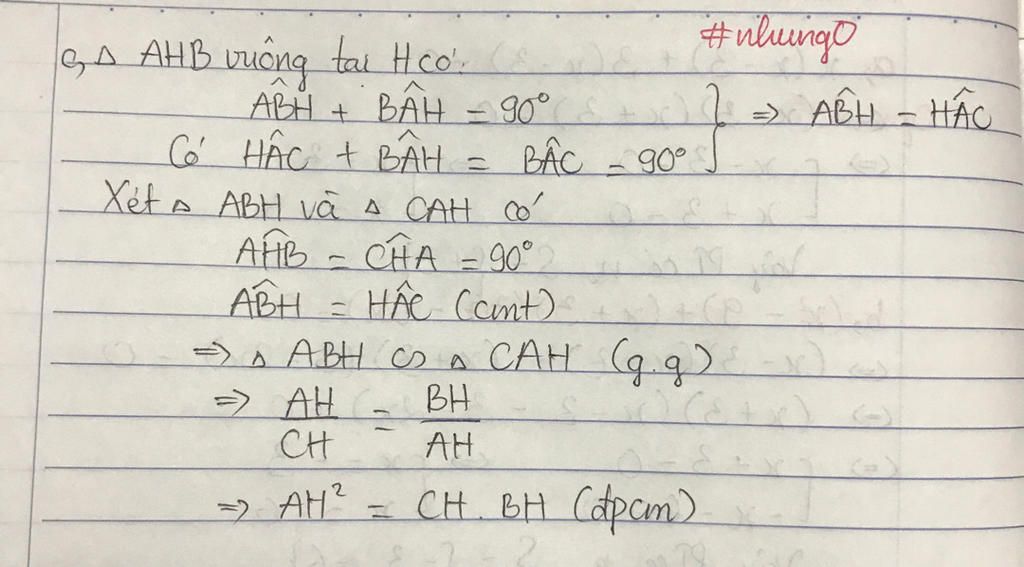 #nhung0
c, △ AHB vuông tại H có:
AB̂H + BÂH = 90°
Có HÂC + BÂH = BÂC = 90° } ⇒ AB̂H = HÂC
Xét △ ABH và △ CAH có
AĤB = CĤA = 90°
AB̂H = HÂC (cmt)
⇒ △ ABH ∽ △ CAH (g.g)
⇒ AH/CH = BH/AH
⇒ AH² = CH . BH (đpcm)